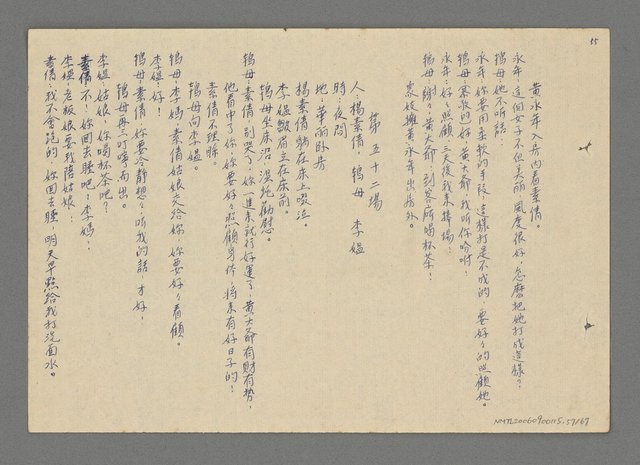 55
黃永年入房內看素倩。
永年:這個女子不但美麗,風度很好,怎麼把她打成這樣?
鴇母:她不听話。
永年:妳要用柔軟的手段,這樣打是不成的,要好々的照顧她。
鴇母:客收的好,黃大爺,我听你吩咐!
永年:好々照顧,三天後我來捧場!
鴇母:謝々黃大爺,到客所喝杯茶!
眾妓擁黃永年出房外。
第五十二場
人:楊素倩、鴇母、李媼
時:夜間
地:華麗卧房
楊素倩躺在床上啜泣。
李媼皺眉立在床前。
鴇母坐床沿,溫純勸慰。
鴇母:素倩,別哭了!妳一進來就行好運了,黃大爺有財有勢,
他看中了妳,妳要好々照顧身体,將來有好日子的!
素倩不理睬。
鴇母向李媼。
鴇母:李媽,素倩姑娘交給妳,妳要好々看顧。
李媼:好!
鴇母:素倩,妳要冷靜想々,听我的話,才好!
鴇母再三叮嚀而出。
李媼:姑娘,妳喝杯茶吧?
素倩:不!妳回去睡吧!李媽!
李媼:老板娘要我陪姑娘!
素倩:我不會跑的,妳回去睡,明天早點給我打洗面水。
NMTL20060900115.57/67